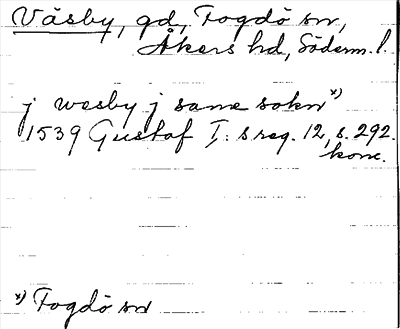 Väsby, gd, Fogdö sn,
Åkers hd, Söderm. l.
j wæsby j same sokn x)
1539 Gustaf I:s reg. 12, s. 292.
konc.
x) Fogdö sn